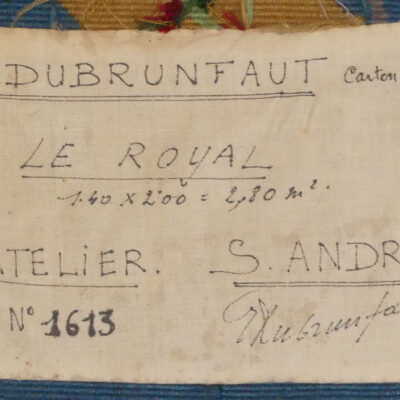 DUBRUNFAUT Carton
LE ROYAL
1.40 x 2.00 = 2,80 m².
ATELIER. S. ANDR
N° 1613
Dubrunfa